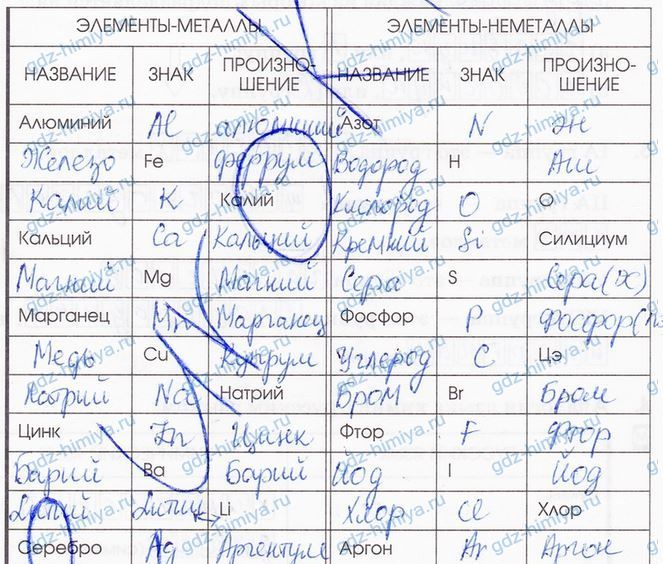 ЭЛЕМЕНТЫ-МЕТАЛЛЫ ЭЛЕМЕНТЫ-НЕМЕТАЛЛЫ
НАЗВАНИЕ ЗНАК ПРОИЗНО-ШЕНИЕ НАЗВАНИЕ ЗНАК ПРОИЗНО-ШЕНИЕ
Алюминий Al алюминий Азот N Эн
Железо Fe феррум Водород H Аш
Калий K Калий Кислород O О
Кальций Ca Кальций Кремний Si Силициум
Магний Mg Магний Сера S Сера(
Марганец Mn Марганец Фосфор P Фосфор(
Медь Cu Купрум Углерод C Цэ
Натрий Na Натрий Бром Br Бром
Цинк Zn Цинк Фтор F Фтор
Барий Ba Барий Йод I Йод
Литий Литий Li Хлор Cl Хлор
Серебро Ag Аргентум Аргон Ar Аргон
gdz-himiya.ru